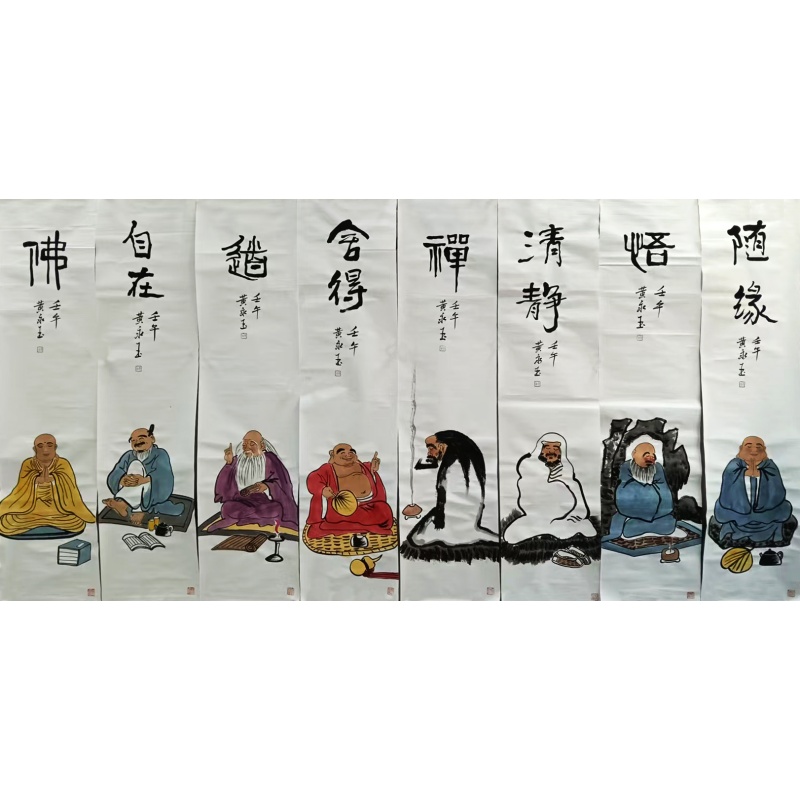 佛
壬午
黄永玉
自在
壬午
黄永玉
道
壬午
黄永玉
舍得
壬午
黄永玉
禪
壬午
黄永玉
清静
壬午
黄永玉
悟
壬午
黄永玉
随缘
壬午
黄永玉